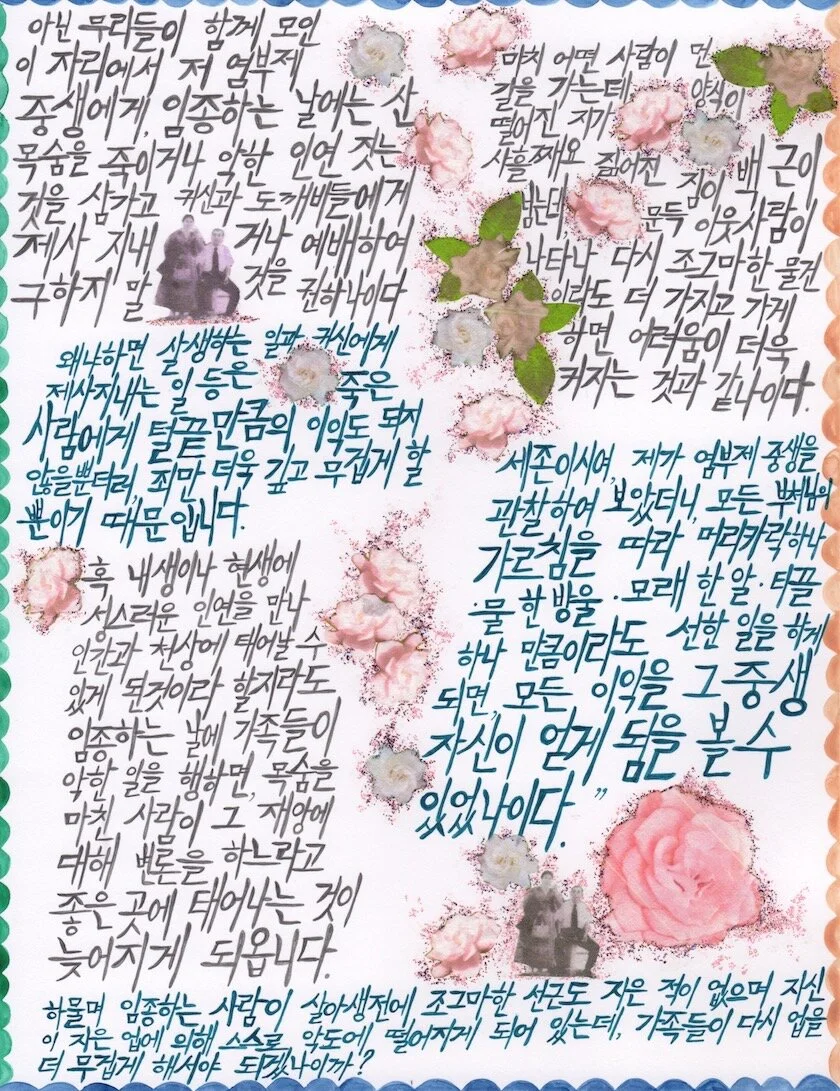 아닌 무리들이 함께 모인
이 자리에서 저 염부제
중생에게, 임종하는 날에는 산
목숨을 죽이거나 악한 인연 짓는
것을 삼가고 귀신과 도깨비들에게
제사 지내 거나 예배하여
구하지 말 것을 권하나이다
왜냐하면 살생하는 일과 귀신에게
제사지내는 일 등은 죽은
사람에게 털끝만큼의 이익도 되지
않을뿐더러, 죄만 더욱 깊고 무겁게 할
뿐이기 때문입니다.
혹 내생이나 현생에
성스러운 인연을 만나
인간과 천상에 태어날 수
있게 된것이라 할지라도
임종하는 날에 가족들이
악한 일을 행하면, 목숨을
마친 사람이 그 재앙에
대해 변론을 하느라고
좋은 곳에 태어나는 것이
늦어지게 되옵니다.
하물며 임종하는 사람이 살아생전에 조그마한 선근도 지은 적이 없으며 자신
이 지은 업에 의해 스스로 악도에 떨어지게 되어 있는데, 가족들이 다시 업을
더 무겁게 해서야 되겠나이까?
마치 어떤 사람이 먼
길을 가는데 양식이
떨어진 지가
사흘째요 짊어진 짐이 백 근이
넘는데 문득 이웃사람이
나타나 다시 조그마한 물건
이라도 더 가지고 가게
하면 어려움이 더욱
커지는 것과 같나이다.
세존이시여, 제가 염부제 중생을
관찰하여 보았더니, 모든 부처님의
가르침을 따라 머리카락하나
·물 한 방울 ·모래 한 알 · 티끌
하나 만큼이라도 선한 일을 하게
되면, 모든 이익을 그 중생
자신이 얻게 됨을 볼 수
있었나이다.”